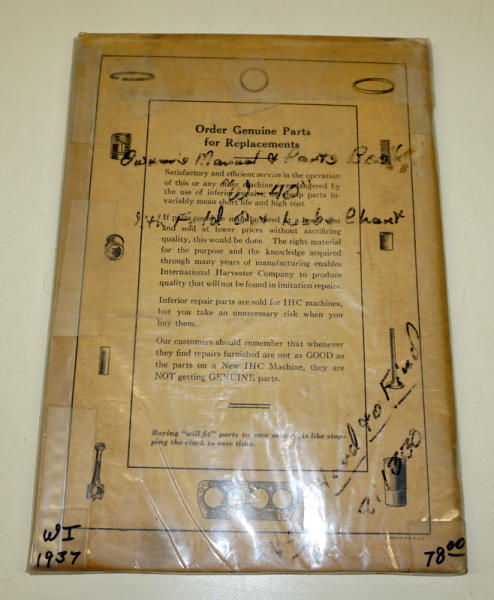 Order Genuine Parts
for Replacements
Owner's Manual & Parts Book
Satisfactory and efficient service in the operation
of this or any other machine is endangered by
the use of inferior repairs, as cheap parts in-
variably mean short life and high cost.
If parts could be manufactured at a less cost
and sold at lower prices without sacrificing
quality, this would be done. The right material
for the purpose and the knowledge acquired
through many years of manufacturing enables
International Harvester Company to produce
quality that will not be found in imitation repairs.
Inferior repair parts are sold for IHC machines,
but you take an unnecessary risk when you
buy them.
Our customers should remember that whenever
they find repairs furnished are not as GOOD as
the parts on a New IHC Machine, they are
NOT getting GENUINE parts.
Buying "will-fit" parts to save money, is like stop-
ping the clock to save time.
Lube Chart
Hard to Find
WI
1937
78.00